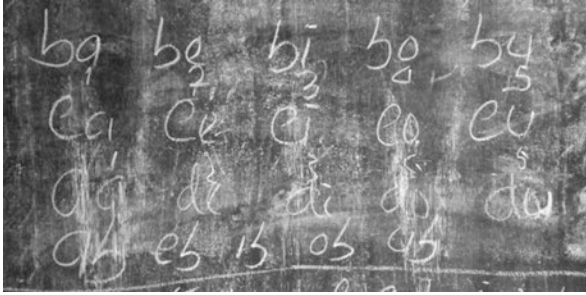 ba be bi bo bu
1 2 3 4 5
ca ce ci co cu
1 2 3 4 5
da de di do du
ab eb ib ob ub